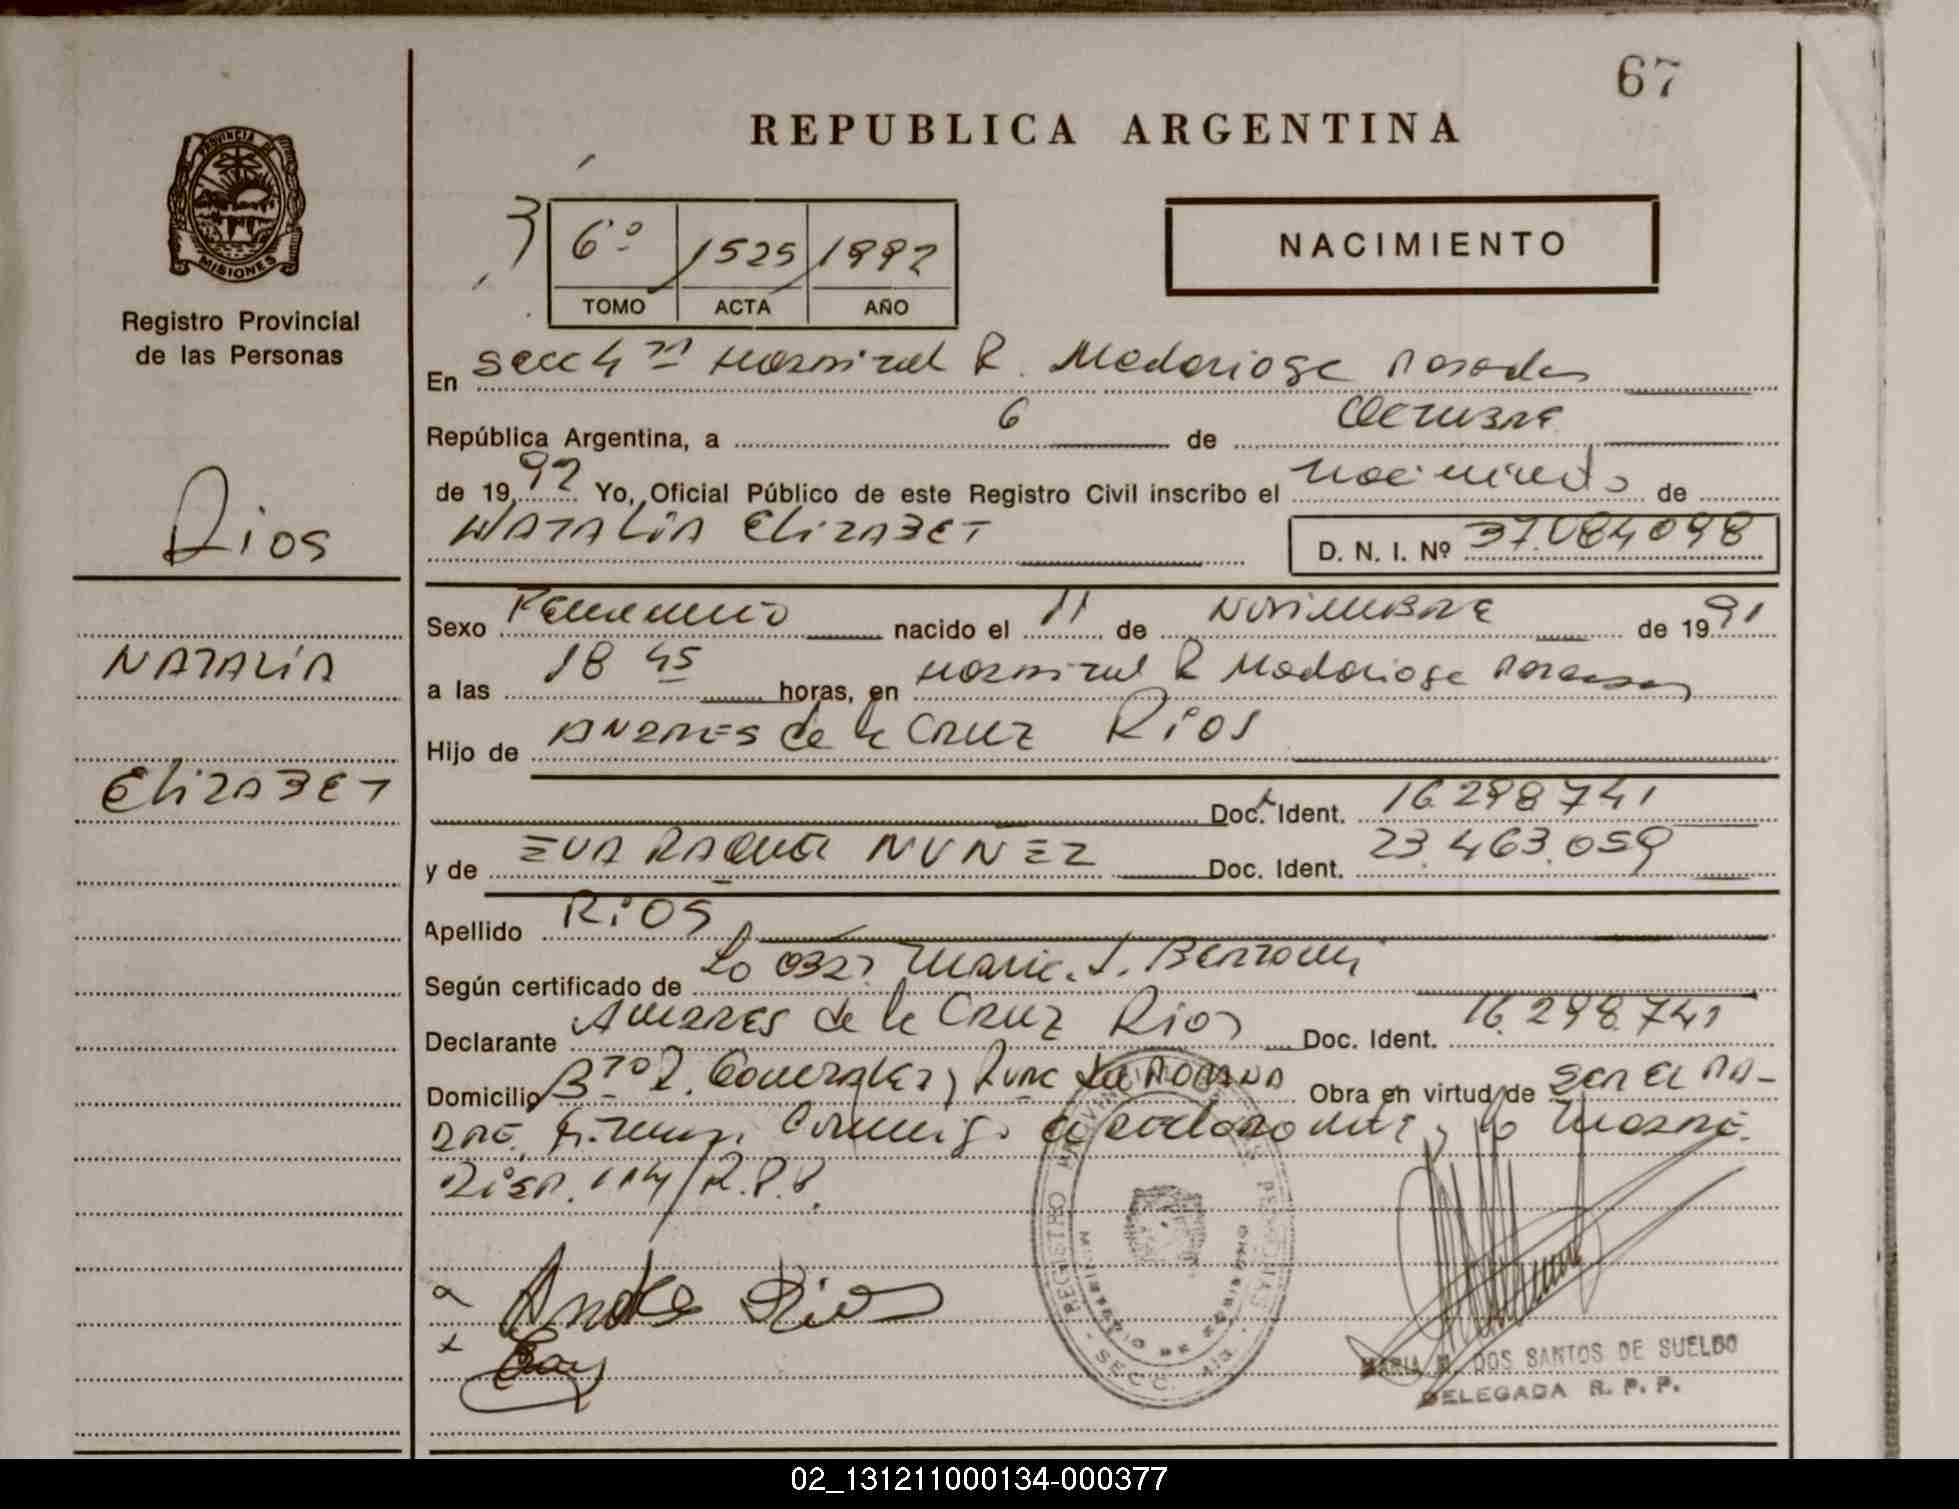 67
REPUBLICA ARGENTINA
PROVINCIA DE
MISIONES
Registro Provincial
de las Personas
3
6º 1525 1992
TOMO ACTA AÑO
NACIMIENTO
En Secc 4ª Hospital R. Madariaga Posadas
República Argentina, a 6 de Octubre
de 1992 Yo, Oficial Público de este Registro Civil inscribo el nacimiento de
NATALIA ElizABET D. N. I. Nº 37.084098
Rios
NATALIA
ElizABET
Sexo Femenino nacido el 11 de NOViEMBRE de 1991
a las 18 45 horas, en Hospital R Madariaga Posadas
Hijo de ANDRES de la CRUZ RiOS
Doc. Ident. 16.298.741
y de EVA RAQUEL NUÑEZ Doc. Ident. 23.463.059
Apellido RiOS
Según certificado de La Obst. Maria J.
Declarante ANDRES de la CRUZ Rios Doc. Ident. 16.298.741
Domicilio Bº Obra en virtud de SER EL PA-
DRE. Conmigo el declarante y la MADRE.
DiSP. /R.P.P.
REGISTRO PROVINCIAL DE LAS PERSONAS
MINISTERIO DE GOBIERNO
SECC. 4ta.
Rios
MARIA DOS SANTOS DE SUELDO
DELEGADA R. P. P.
02_131211000134-000377